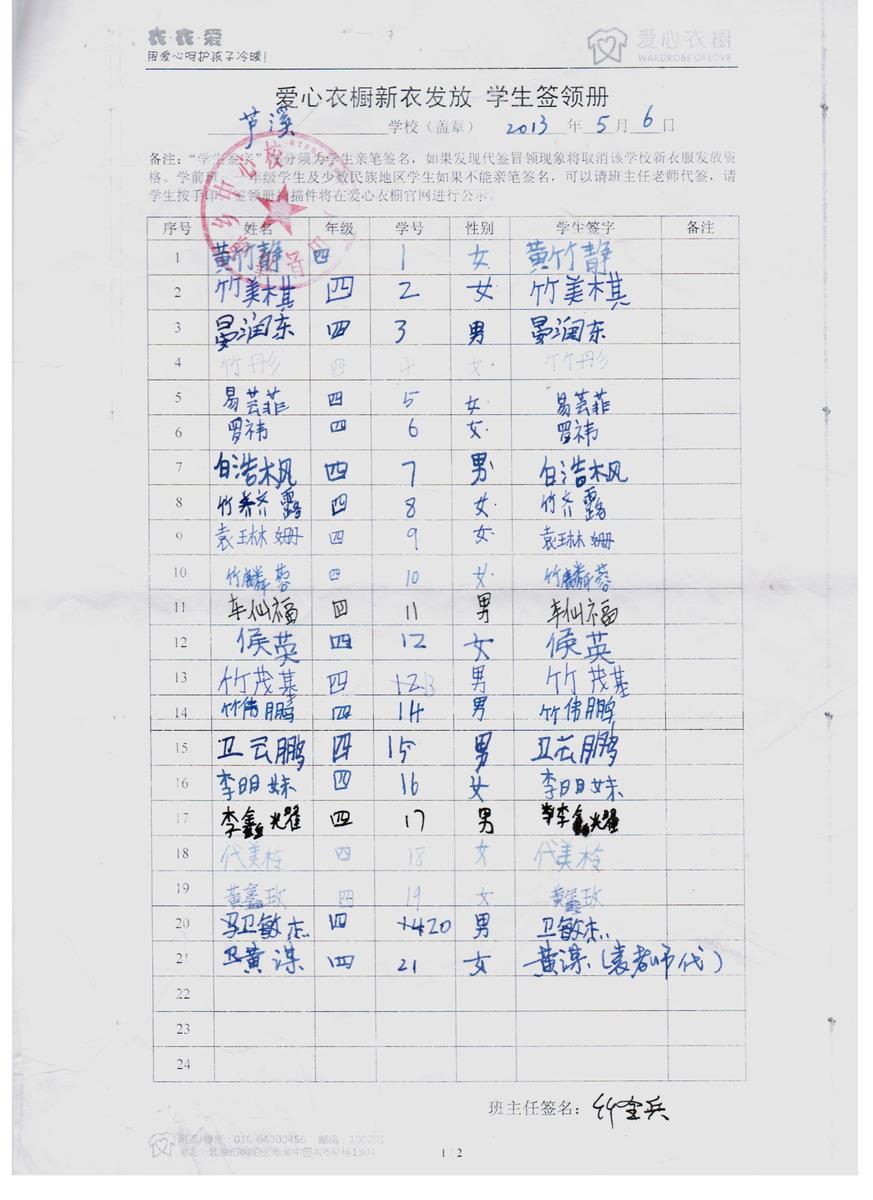 衣·衣·爱
用爱心呵护孩子冷暖!
爱心衣橱
WARDROBE OF LOVE
爱心衣橱新衣发放 学生签领册
芦溪 学校（盖章） 2013 年 5 月 6 日
备注：“学生签字”部分须为学生亲笔签名，如果发现代签冒领现象将取消该学校新衣服发放资
格。学前班、一年级学生及少数民族地区学生如果不能亲笔签名，可以请班主任老师代签，请
学生按手印。签领册扫描件将在爱心衣橱官网进行公示。
序号 姓名 年级 学号 性别 学生签字 备注
1 黄竹静 四 1 女 黄竹静
2 竹美棋 四 2 女 竹美棋
3 晏润东 四 3 男 晏润东
4 竹丹彤 四 4 女 竹丹彤
5 易芸菲 四 5 女 易芸菲
6 罗祎 四 6 女 罗祎
7 白浩枫 四 7 男 白浩枫
8 竹齐露 四 8 女 竹齐露
9 袁琳姗 四 9 女 袁琳姗
10 竹麟蓉 四 10 女 竹麟蓉
11 车仙福 四 11 男 车仙福
12 候英 四 12 女 候英
13 竹茂基 四 13 男 竹茂基
14 竹伟鹏 四 14 男 竹伟鹏
15 卫云鹏 四 15 男 卫云鹏
16 李明妹 四 16 女 李明妹
17 李鑫耀 四 17 男 李鑫耀
18 代美柃 四 18 女 代美柃
19 黄鑫玫 四 19 女 黄鑫玫
20 卫敏杰 四 20 男 卫敏杰
21 黄谋 四 21 女 黄谋（袁老师代）
22
23
24
班主任签名：竹金兵
010-64300456 邮编：
1 / 2